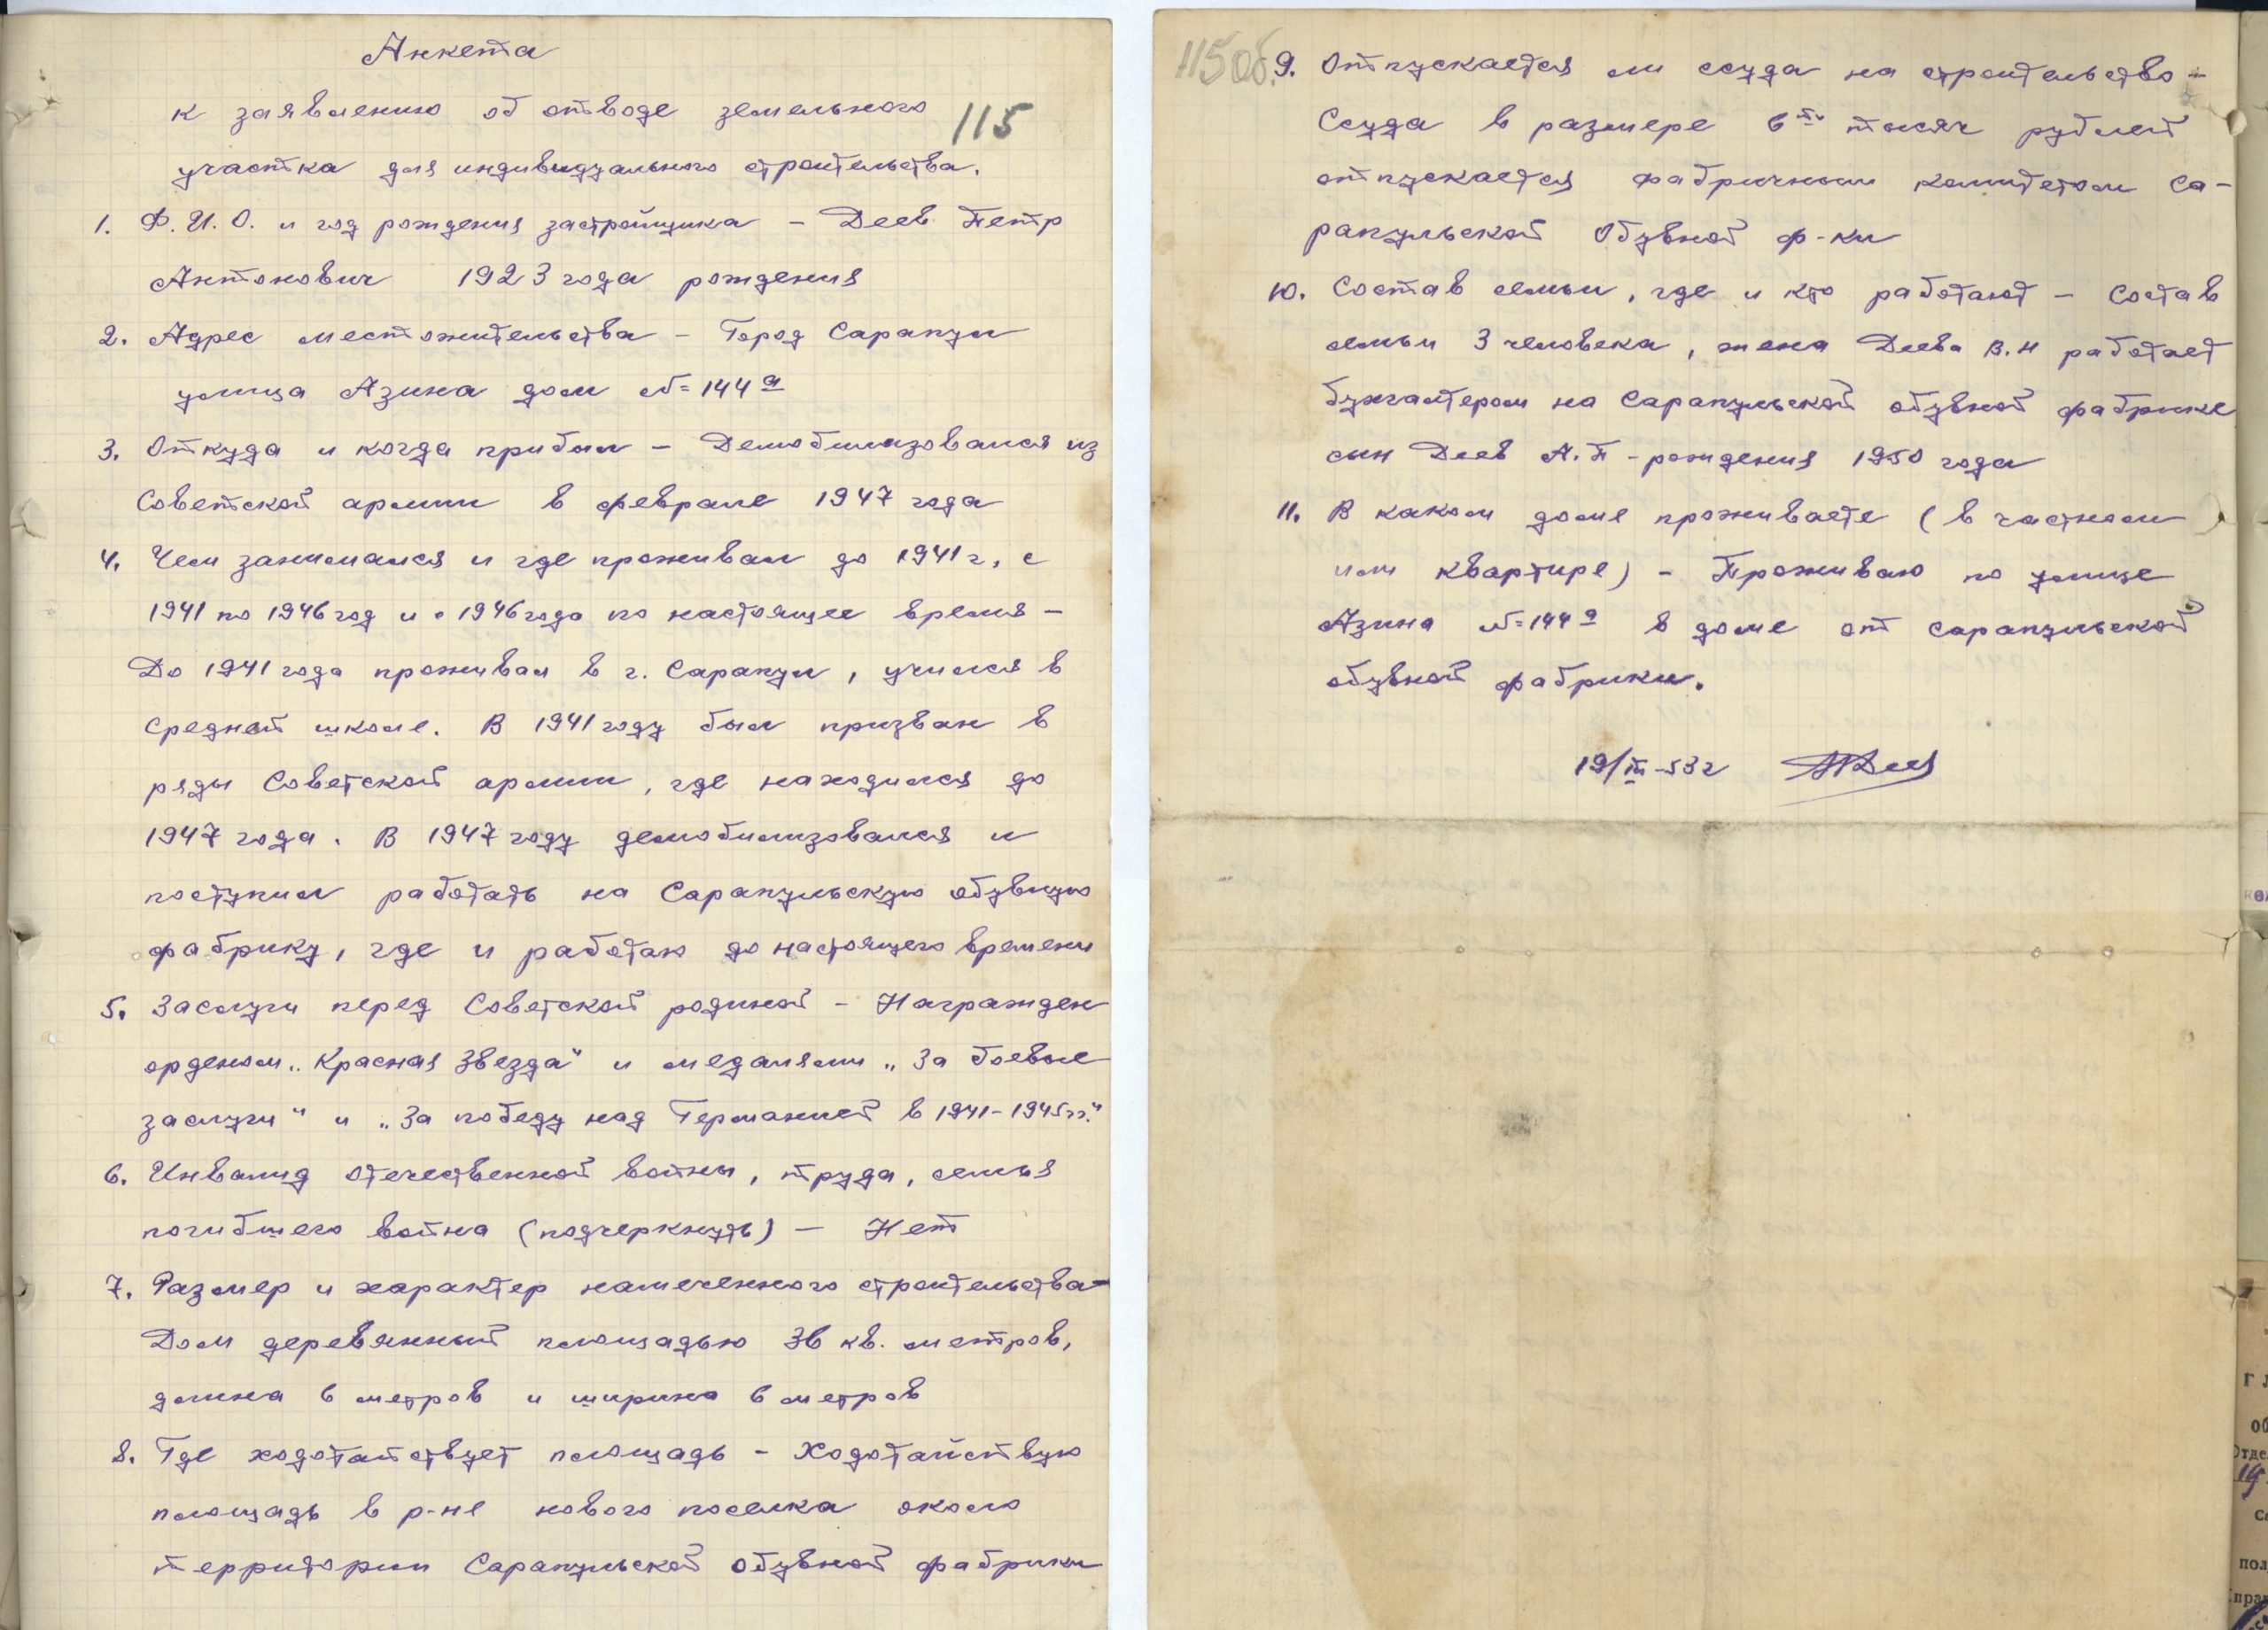 Анкета
к заявлению об отводе земельного
115
участка для индивидуального строительства.
1. Ф.И.О. и год рождения застройщика – Деев Петр
Антонович 1923 года рождения
2. Адрес местожительства – Город Сарапул
улица Азина дом №144а
3. Откуда и когда прибыл – Демобилизовался из
Советской армии в феврале 1947 года
4. Чем занимался и где проживал до 1941 г, с
1941 по 1946 год и с 1946 года по настоящее время –
До 1941 года проживал в г. Сарапул, учился в
средней школе. В 1941 году был призван в
ряды Советской армии, где находился до
1947 года. В 1947 году демобилизовался и
поступил работать на Сарапульскую обувную
фабрику, где и работаю до настоящего времени
5. Заслуги перед Советской родиной – Награжден
орденом „Красная Звезда" и медалями „За боевые
заслуги" и „За победу над Германией в 1941–1945 гг."
6. Инвалид отечественной войны, труда, семья
погибшего война (подчеркнуть) – Нет
7. Размер и характер намеченного строительства –
Дом деревянный площадью 36 кв. метров,
длина 6 метров и ширина 6 метров
8. Где ходотайствует площадь – Ходотайствую
площадь в р-не нового поселка около
территории Сарапульской обувной фабрики
115об.
9. Отпускается ли ссуда на строительство –
Ссуда в размере 6ти тысяч рублей
отпускается фабричным комитетом Са-
рапульской Обувной ф-ки
10. Состав семьи, где и кто работают – Состав
семьи 3 человека, жена Деева В.Н работает
бухгалтером на Сарапульской обувной фабрике
сын Деев А.П – рождения 1950 года
11. В каком доме проживаете (в частном
или квартире) – Проживаю по улице
Азина №144а в доме от сарапульской
обувной фабрики.
19/III-53г